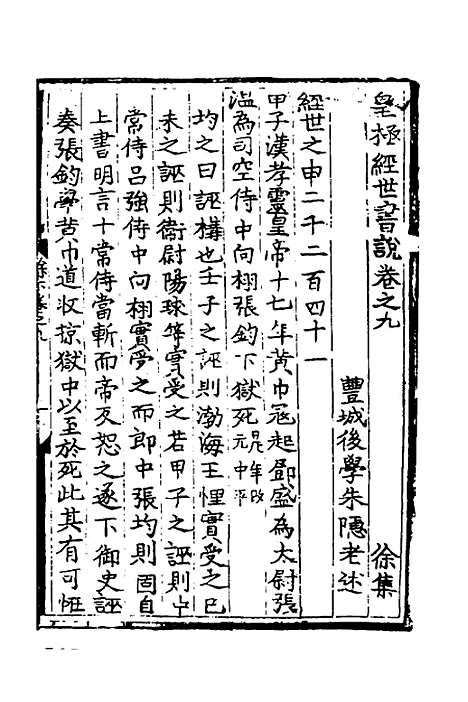 皇極經世書說卷之九
徐集
豐城後學朱隱老述
經世之申二千二百四十一
甲子漢孝靈皇帝十七年黃巾冦起鄧盛為太尉張
溫為司空侍中向栩張鈞下獄死是年改元中平
均之曰誣搆也壬子之誣則渤海王悝實受之巳
未之誣則衛尉陽球等實受之若甲子之誣則中
常侍呂強侍中向栩實受之而郎中張均則固自
上書明言十常侍當斬而帝反怒之遂下御史誣
奏張鈞學黃巾道收掠獄中以至於死此其有可恠